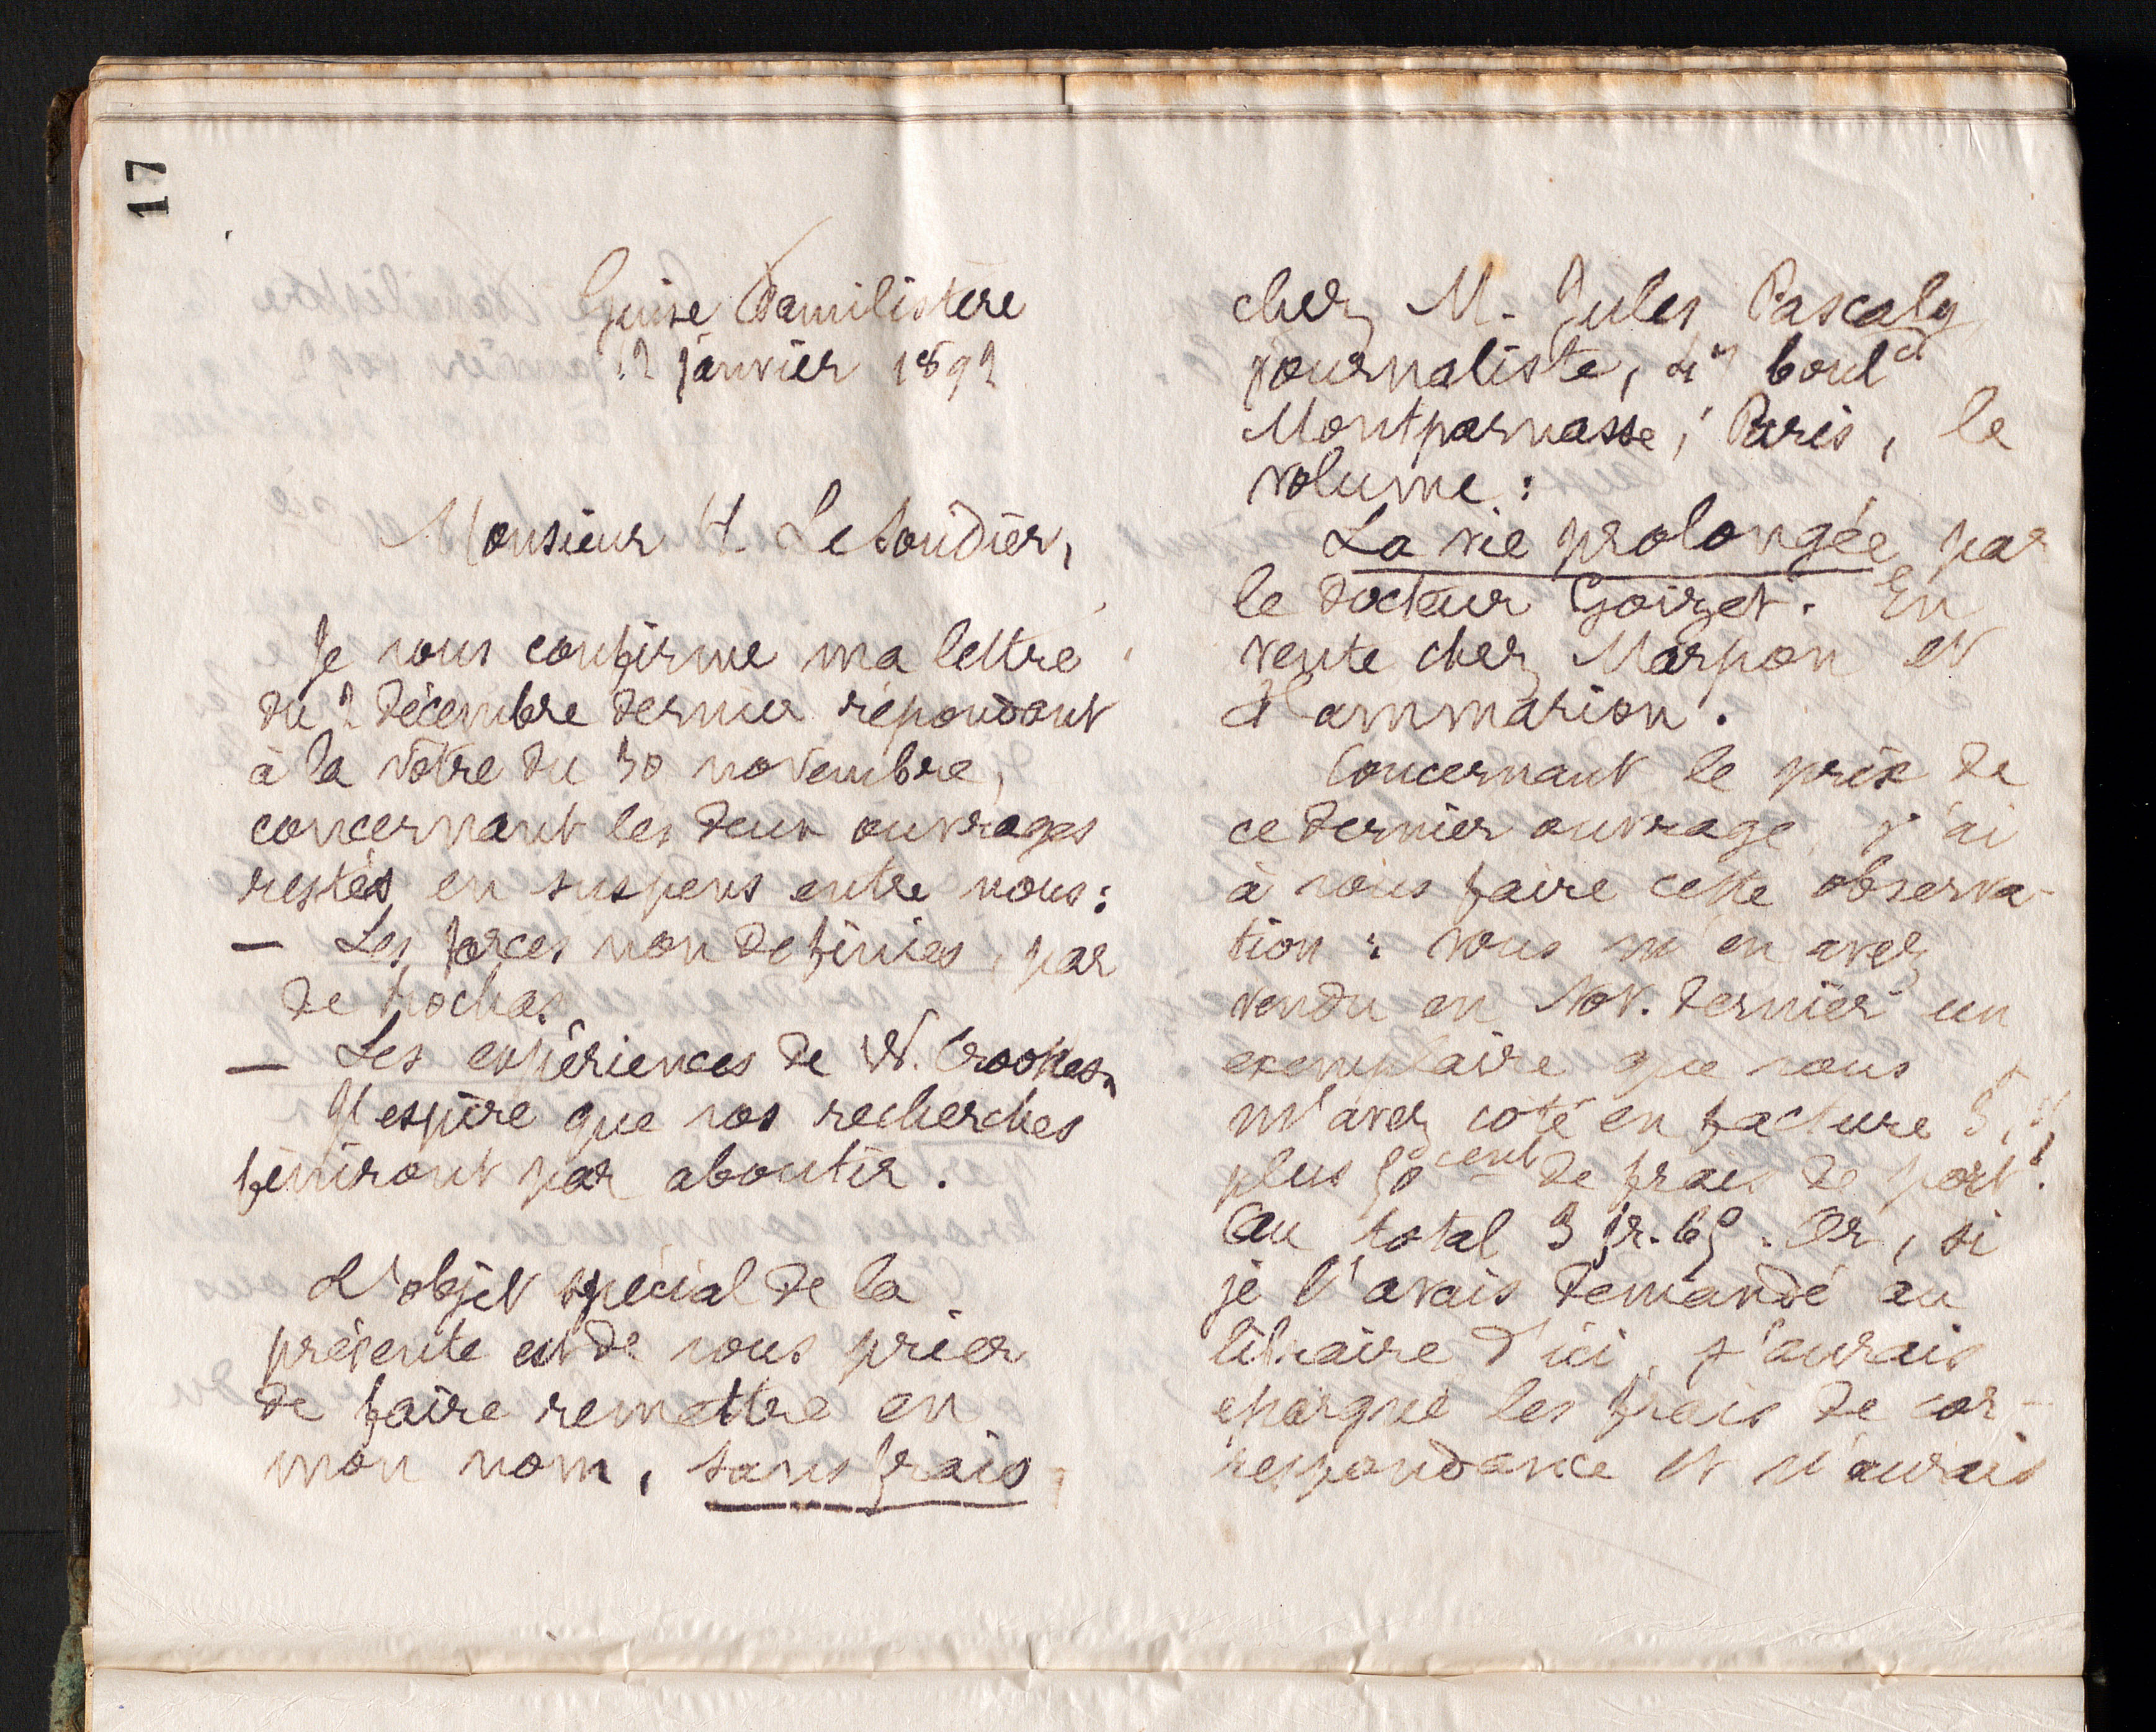 17
Guise Familistère
2 janvier 1892
Monsieur H. Le Soudier,
Je vous confirme ma lettre
du 2 décembre dernier répondant
à la vôtre du 30 novembre,
concernant les deux ouvrages
restés en suspens entre nous :
— Les forces non définies, par
de Rochas
— Les expériences de W. Crookes.
J'espère que vos recherches
finiront par aboutir.
L'objet spécial de la
présente est de vous prier
de faire remettre en
mon nom, sans frais,
chez M. Jules Pascaly
journaliste, boul^d
Montparnasse, Paris, le
volume :
La vie prolongée par
le docteur Goizet. En
vente chez Marpon et
Flammarion.
Concernant le prix de
ce dernier ouvrage, j'ai
à vous faire cette observa-
tion : vous m'en avez
vendu en Nov. dernier un
exemplaire que vous
m'avez coté en facture
plus cent de frais de port.
Au total 3 fr. 65. Or, si
je l'avais demandé au
libraire d'ici, j'aurais
épargné les frais de cor-
respondance et n'aurais